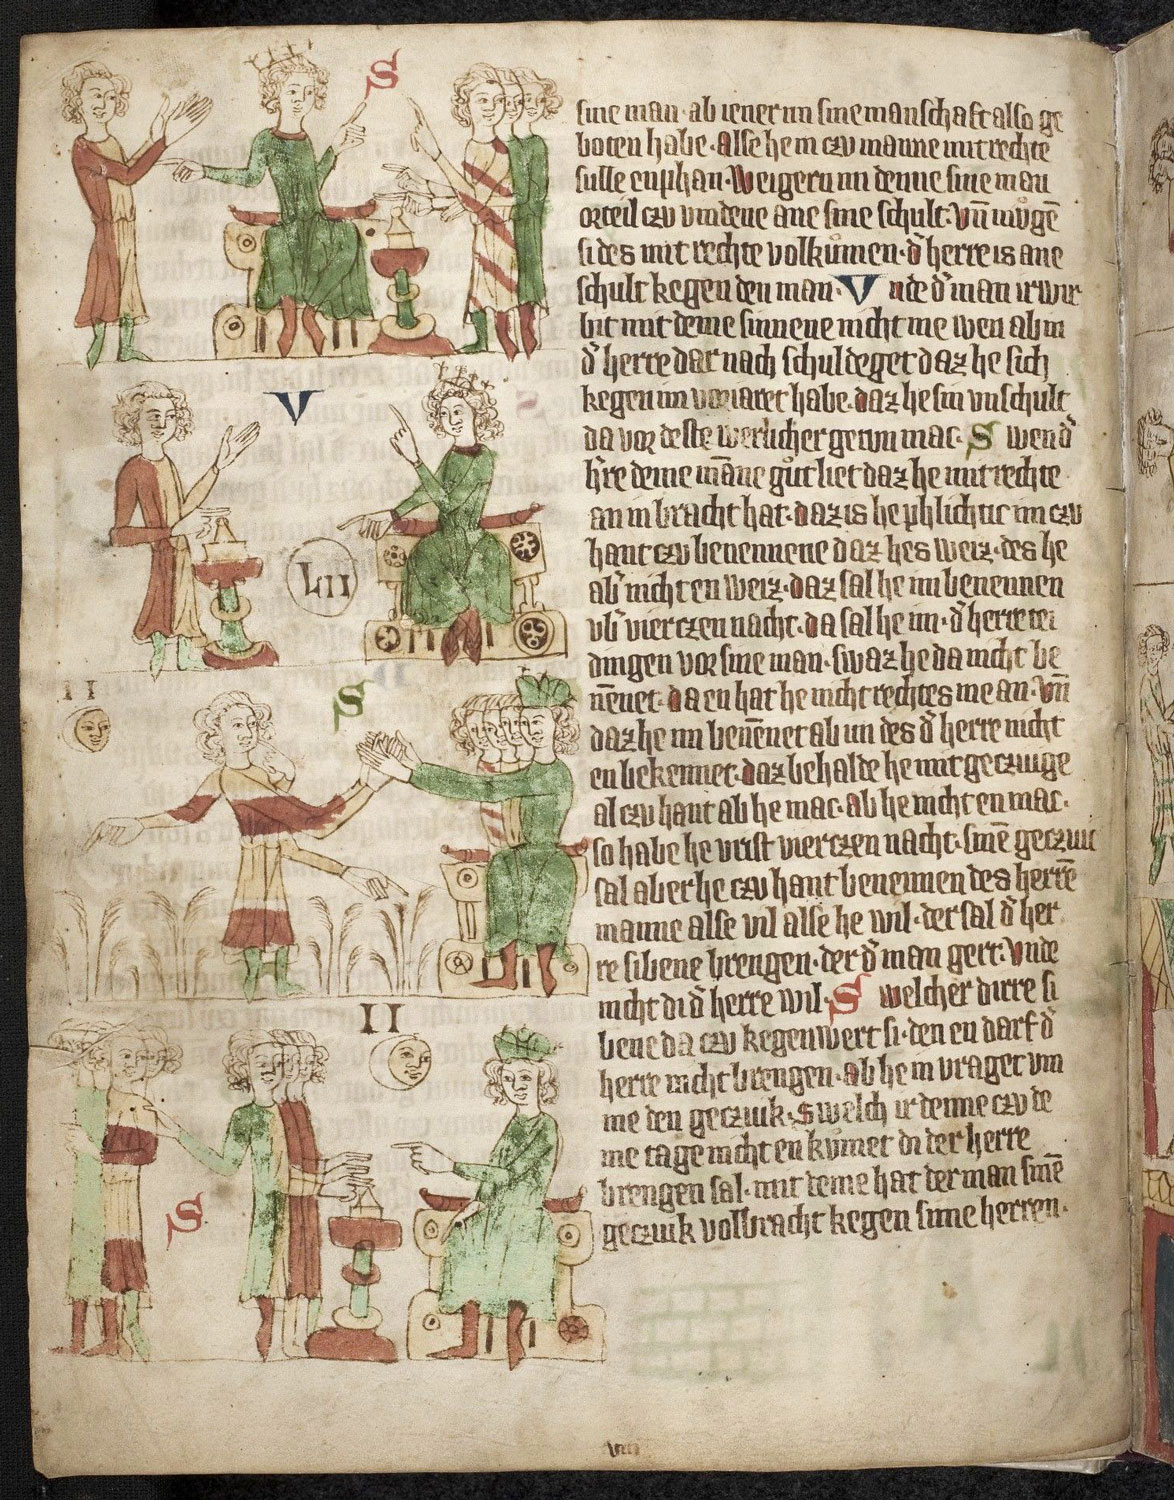 S
V
LII
II
S
II
S
sine man · ab iener im sine manschaft also ge
boten habe · Alse he in czu manne mit rechte
sulle enphan · Weigern im denne sine man
orteil czu vindene ane sine schult · vn̄ mvgē
si des mit rechte volkůmen · d̓ herre is ane
schult kegen den man · V nde d̓ man irwir
bit mit deme sinnene nicht me wen ab in
d̓ herre dar nach schuldeget daz he sich
kegen im voriaret habe · daz he sin vnschult
da vor deste werlicher getun mac · S wen d̓
h̓re deme māne gůt liet daz he mit rechte
an in bracht hat · daz is he phlichtic im czu
hant czu benennene daz hes weiz · des he
ab̓ nicht en weiz · daz sal he im benennen
vb̓ vierczen nacht · da sal he im · d̓ herre tei
dingen vor sine man · swaz he da nicht be
nēnet · da en hat he nicht rechtes me an · vn̄
daz he im benēnet ab im des d̓ herre nicht
en bekennet · daz behalde he mit geczuge
al czu hant ab he mac · ab he nicht en mac ·
so habe he vrist vierczen nacht · sinē geczuic
sal aber he czu hant benennen des herrē
manne alse vil alse he wil · der sal d̓ her
re sibene brengen · der d̓ man gert · Vnde
nicht di d̓ herre wil · S welcher dirre si
bene da czu kegenwert si · den en darf d̓
herre nicht brengen · ab he in vraget vm
me den geczuik · Swelch ir denne czu de
me tage nicht en kůmet di der herre
brengen sal · mit deme hat der man sinē
geczuik volbracht kegen sime herren ·